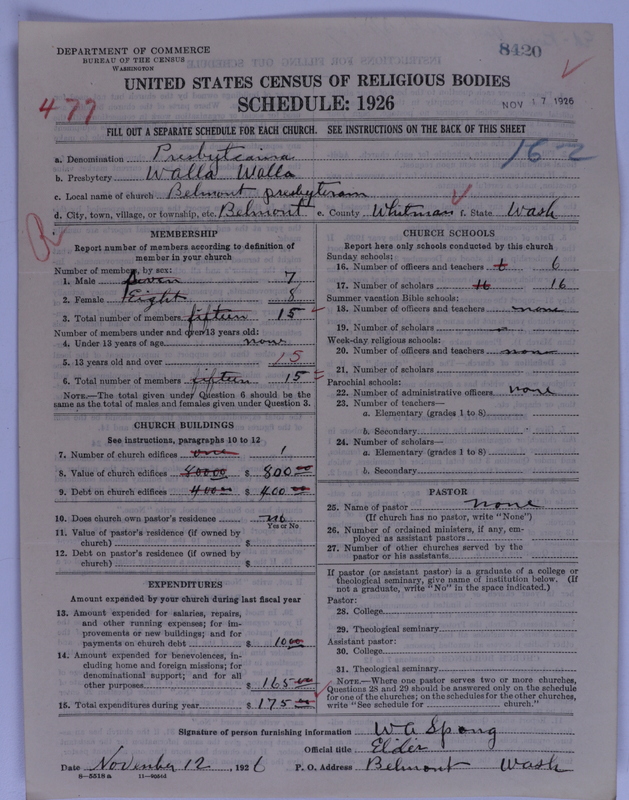 DEPARTMENT OF COMMERCE
BUREAU OF THE CENSUS
WASHINGTON
8420
UNITED STATES CENSUS OF RELIGIOUS BODIES
477
SCHEDULE: 1926
NOV 17 1926
FILL OUT A SEPARATE SCHEDULE FOR EACH CHURCH. SEE INSTRUCTIONS ON THE BACK OF THIS SHEET
162
a. Denomination Presbyteaina
b. Presbytery Walla Walla
c. Local name of church Belmont presbyteram
d. City, town, village, or township, etc. Belmont e. County Whitman f. State Wash
MEMBERSHIP
Report number of members according to definition of
member in your church
Number of members, by sex:
1. Male Seven 7
2. Female Eight 8
3. Total number of members fifteen 15
Number of members under and over 13 years old:
4. Under 13 years of age none
5. 13 years old and over 15
6. Total number of members fifteen 15
NOTE.—The total given under Question 6 should be the
same as the total of males and females given under Question 3.
CHURCH BUILDINGS
See instructions, paragraphs 10 to 12
7. Number of church edifices one 1
8. Value of church edifices 800 00 $ 800 00
9. Debt on church edifices 400 00 $ 400 00
10. Does church own pastor's residence no
Yes or No
11. Value of pastor's residence (if owned by
church) $
12. Debt on pastor's residence (if owned by
church) $
EXPENDITURES
Amount expended by your church during last fiscal year
13. Amount expended for salaries, repairs,
and other running expenses; for im-
provements or new buildings; and for
payments on church debt $ 10 00
14. Amount expended for benevolences, in-
cluding home and foreign missions; for
denominational support; and for all
other purposes $ 165 00
15. Total expenditures during year $ 175 00
CHURCH SCHOOLS
Report here only schools conducted by this church
Sunday schools:
16. Number of officers and teachers 6 6
17. Number of scholars 16 16
Summer vacation Bible schools:
18. Number of officers and teachers none
19. Number of scholars
Week-day religious schools:
20. Number of officers and teachers none
21. Number of scholars
Parochial schools:
22. Number of administrative officers none
23. Number of teachers—
a. Elementary (grades 1 to 8)
b. Secondary
24. Number of scholars—
a. Elementary (grades 1 to 8)
b. Secondary
PASTOR
25. Name of pastor none
(If church has no pastor, write "None")
26. Number of ordained ministers, if any, em-
ployed as assistant pastors
27. Number of other churches served by the
pastor or his assistants
If pastor (or assistant pastor) is a graduate of a college or
theological seminary, give name of institution below. (If
not a graduate, write "No" in the space indicated.)
Pastor:
28. College
29. Theological seminary
Assistant pastor:
30. College
31. Theological seminary
NOTE.—Where one pastor serves two or more churches,
Questions 28 and 29 should be answered only on the schedule
for one of the churches; on the schedules for the other churches,
write "See schedule for church."
Signature of person furnishing information W A Spong
Official title Elder
Date November 12, 1926 P. O. Address Belmont Wash
8—5518 a 11—9054d